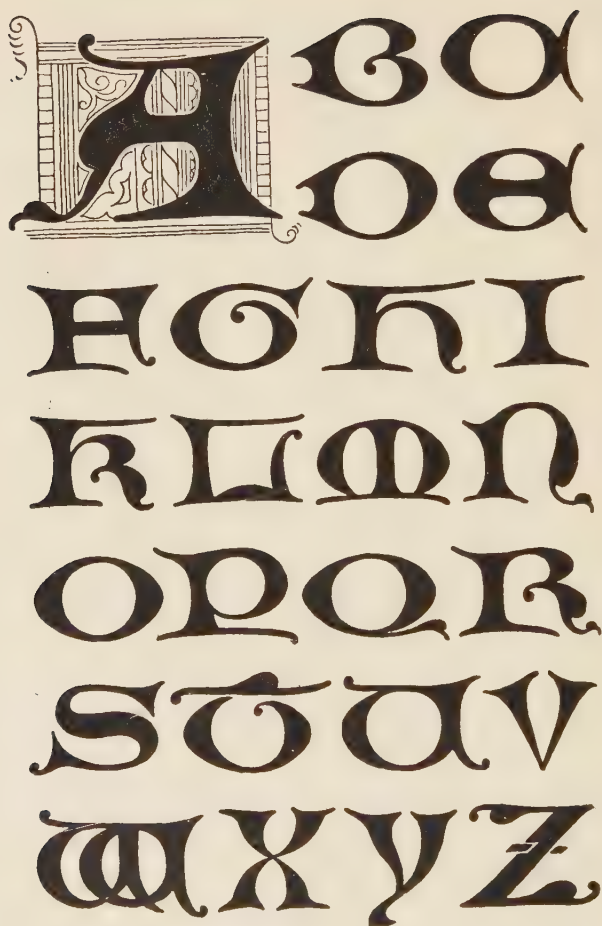 A B C
D E
F G H I
K L M N
O P Q R
S T U V
W X Y Z